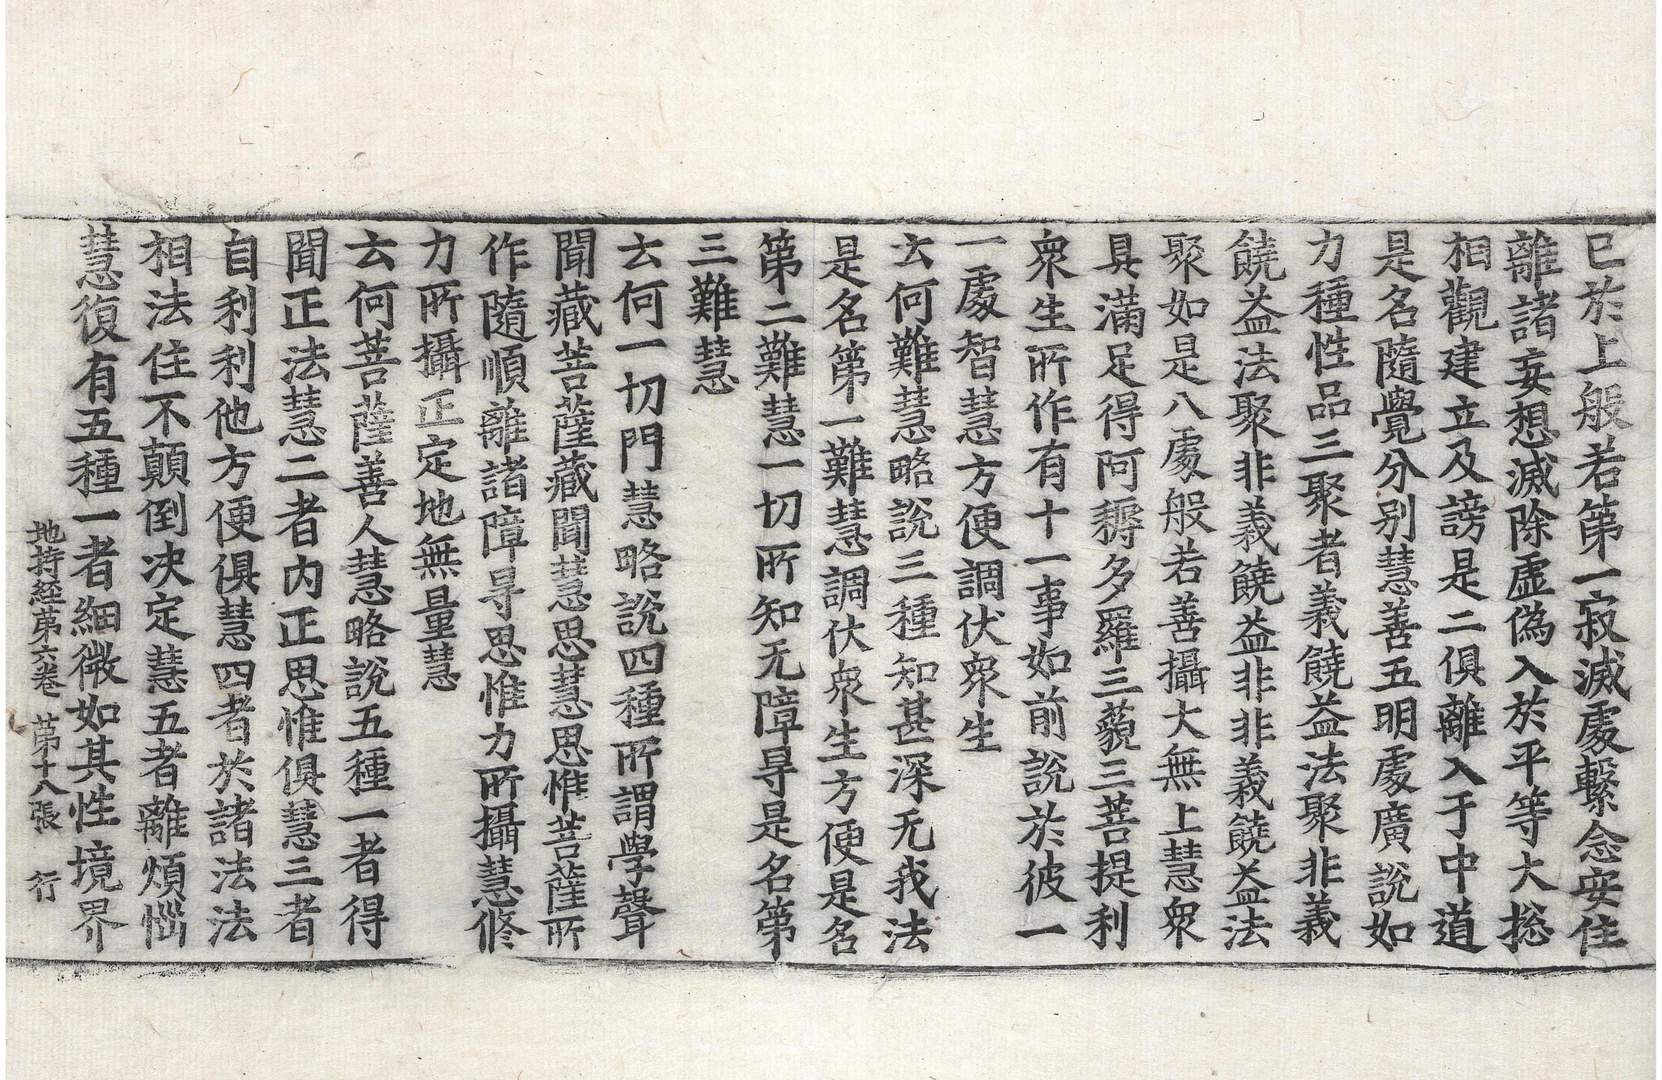 已於上般若第一寂滅處繫念安住
離諸妄想滅除虛偽入於平等大捴
相觀建立及謗是二俱離入于中道
是名隨覺分別慧善五明處廣說如
力種性品三聚者義饒益法聚非義
饒益法聚非義饒益非非義饒益法
聚如是八處般若善攝大無上慧衆
具滿足得阿耨多羅三藐三菩提利
衆生所作有十一事如前說於彼一
一處智慧方便調伏衆生
云何難慧略說三種知甚深无我法
是名第一難慧調伏衆生方便是名
第二難慧一切所知无障㝵是名第
三難慧
云何一切門慧略說四種所謂學聲
聞藏菩薩藏聞慧思慧思惟菩薩所
作隨順離諸障㝵思惟力所攝慧修
力所攝正定地無量慧
云何菩薩善人慧略說五種一者得
聞正法慧二者內正思惟俱慧三者
自利利他方便俱慧四者於諸法法
相法住不顛倒決定慧五者離煩惱
慧復有五種一者細微如其性境界
地持經第六卷 第十八張 行